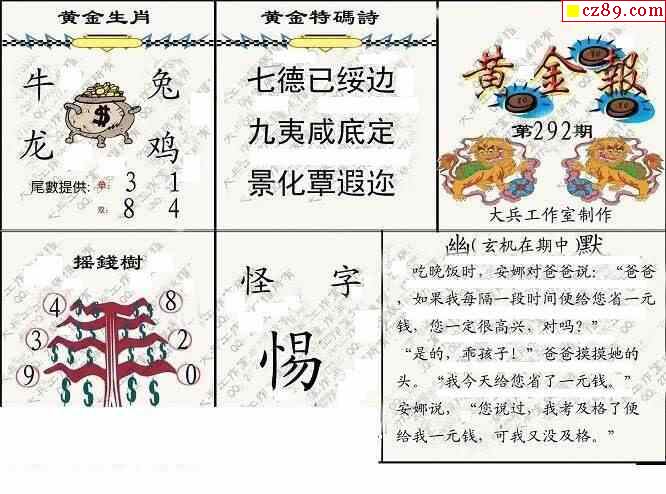 cz89.com
黄金生肖
牛 兔
龙 鸡
$
尾數提供: 单: 3 1
双: 8 4
黄金特碼詩
七德已绥边
九夷咸底定
景化覃遐迩
黄金報
第292期
大兵工作室制作
摇錢樹
4 8
3 2
9 0
怪 字
惕
幽(玄机在期中)默
吃晚饭时，安娜对爸爸说：“爸爸
，如果我每隔一段时间便给您省一元
钱，您一定很高兴，对吗？”
“是的，乖孩子！”爸爸摸摸她的
头。“我今天给您省了一元钱。”
安娜说，“您说过，我考及格了便
给我一元钱，可我又没及格。”